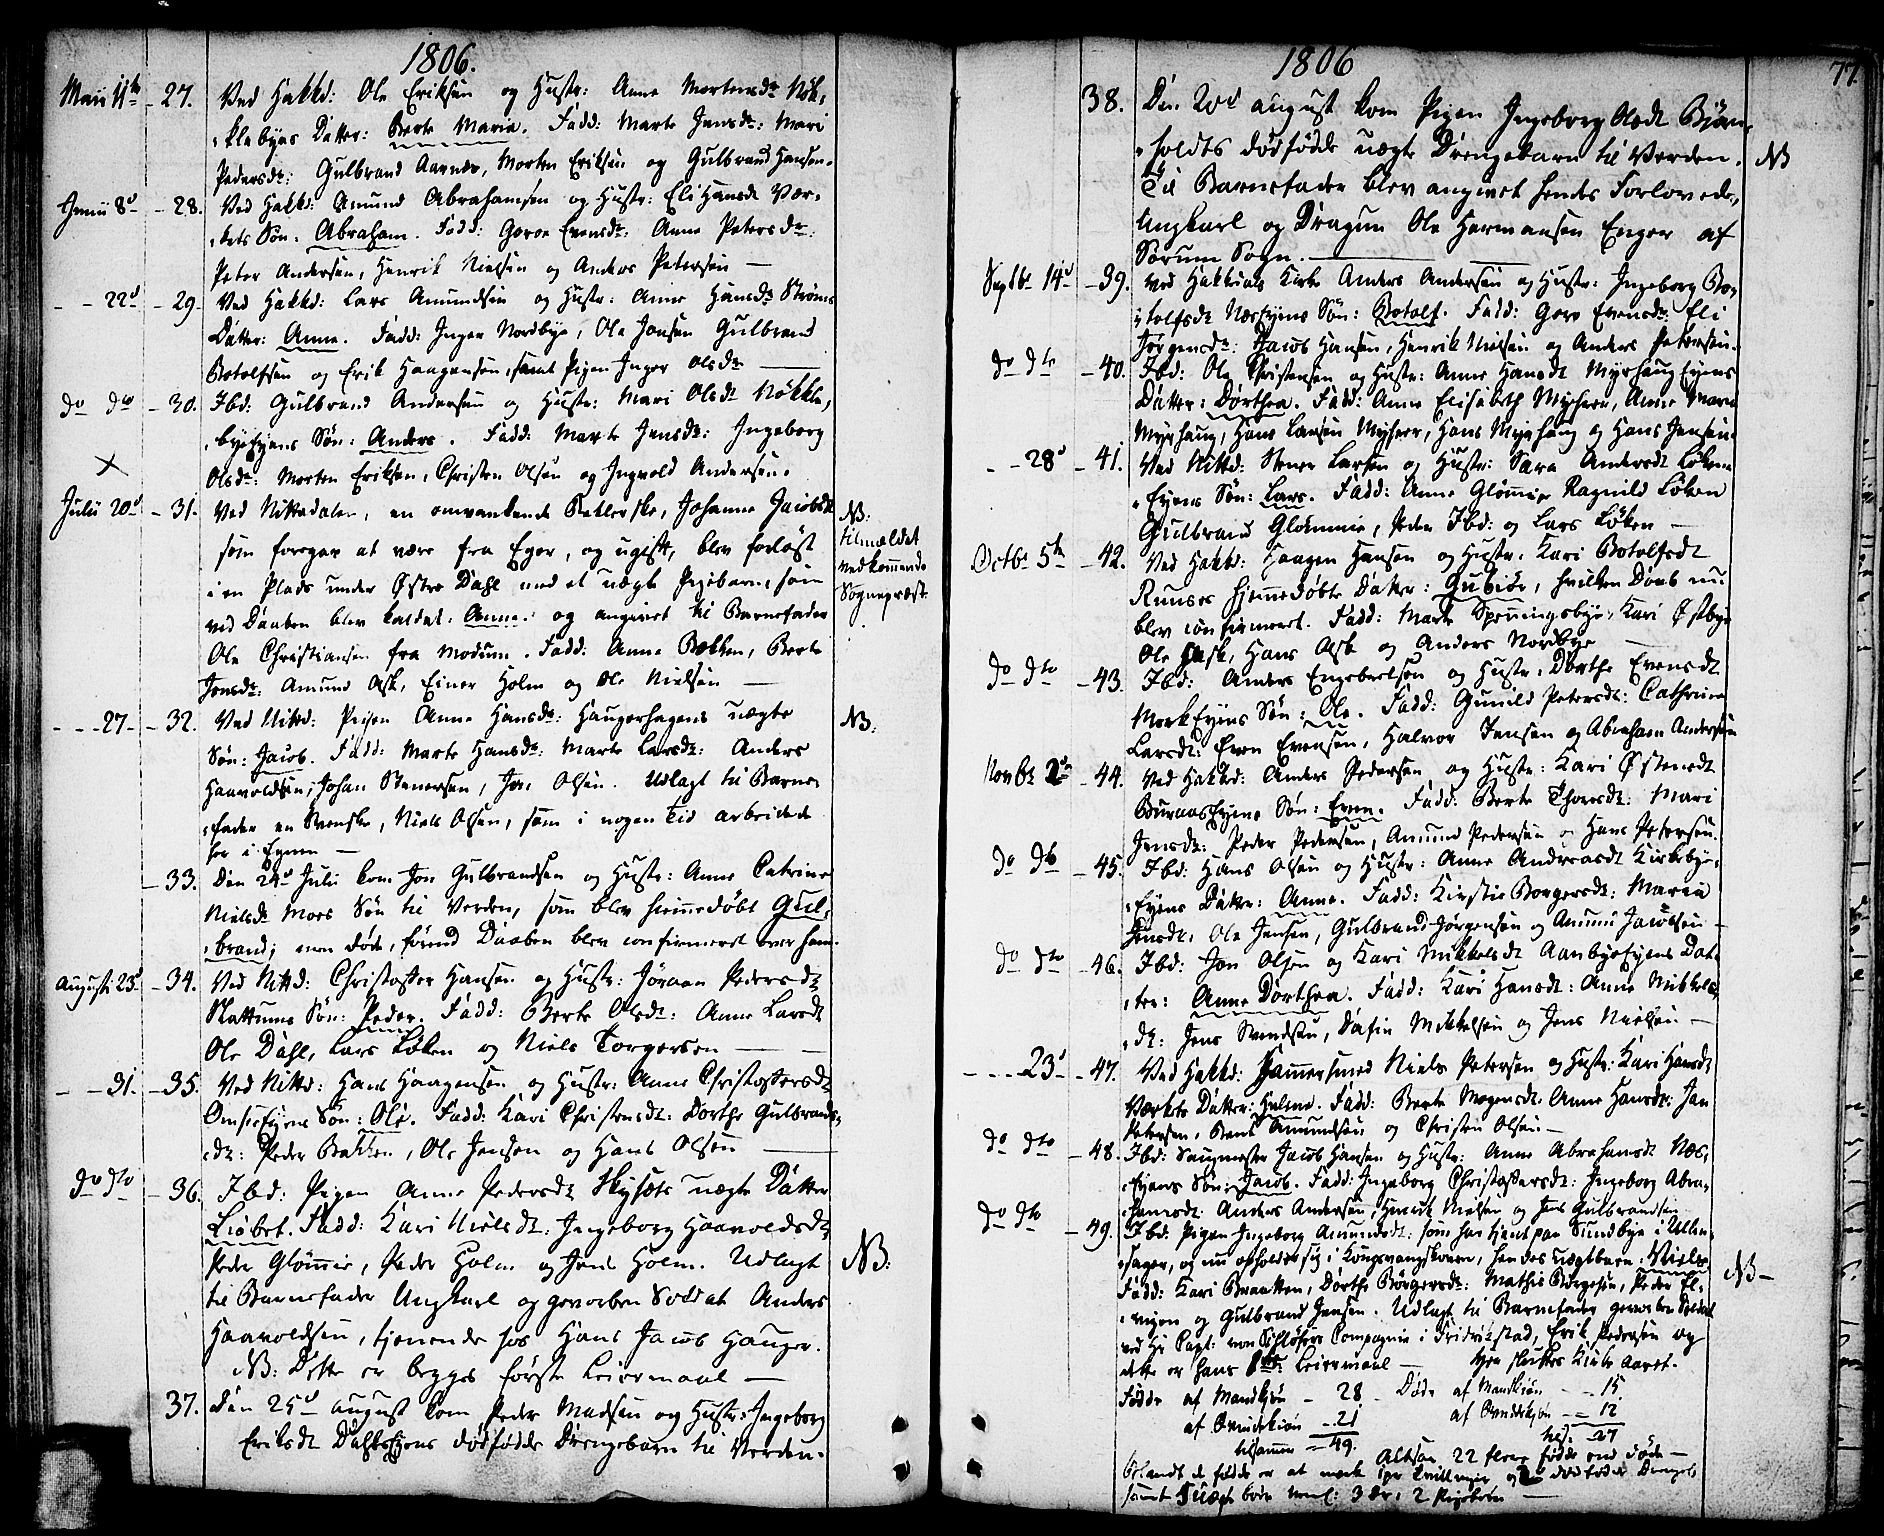 1806.
Maii 11te - 27. Ved Hakkd: Ole Eriksen og Hustr: Anne Mortensdr Nök-
klebyes Datter: Berte Maria. Fadd: Marte Jensdr: Mari
Pedersdr: Gulbrand Aarnes, Morten Eriksen og Gulbrand Hansen.
Junii 8d - 28. Ved Hakkd: Amund Abrahamsen og Hustr: Eli Hansdr Vær-
kets Søn: Abraham. Fadd: Goroe Evensdr: Anne Petersdr:
Peter Andersen, Henrik Nielsen og Anders Petersen —
- - 22d - 29. Ved Hakkd: Lars Amundsen og Hustr: Anne Hansdr Ströms
Datter: Anne. Fadd: Inger Nordbye, Ole Jonsen Gulbrand
Botolfsen og Erik Haagensen, samt Pigen Inger Olsdr —
do dto - 30. Ibd: Gulbrand Andersen og Hustr: Mari Olsdr Nökkle-
byeEyens Søn: Anders. Fadd: Marte Jensdr: Ingeborg
Olsdr: Morten Eriksen, Christen Olsen og Ingvold Andersen.
Julii 20d - 31. Ved Nittedalen, en omvankende Betlerske, Johanne Jacobsdr
som foregav at være fra Eger, og ugift, blev forløst
i en Plads under Østre Dahl med et uægte Pigebarn, som
ved Daaben blev kaldet: Anne: og angivet til Barnefader
Ole Christiansen fra Modum. Fadd: Anne Bakken, Berte
Jensdr: Amund Ask, Einer Holm og Ole Nielsen —
NB:
tilmeldet
vedkommende
Sognepræst.
- - - 27 - 32. Ved Nittd: Pigen Anne Hansdr: Haugerhagens uægte
Søn: Jacob. Fadd: Marte Hansdr: Marte Larsdr: Anders
Haavoldsen, Johan Stenersen, Jon Olsen. Udlagt til Barne-
fader en Svenske, Niels Olsen, som i nogen Tid arbeidede
her i Egnen —
NB:
- 33. Den 24d Julii kom Jon Gulbrandsen og Hustr: Anne Catrine
Nielsdr Moes Søn til Verden, som blev hiemmedøbt Gul-
brand; men døde, førend Daaben blev confirmeret over ham.
Augusti 23d - 34. Ved Nittd: Christoffer Hansen og Hustr: Jøraan Pedersdr
Slattums Søn: Peder. Fadd: Berte Olsdr: Anne Larsdr
Ole Dahl, Lars Løken og Niels Torgersen —
- - 31. - 35. Ved Nittd: Hans Haagensen og Hustr: Anne Christoffersdr
Eyens Søn: Ole. Fadd: Kari Christensdr: Dorthe Gulbrands-
dr: Peder Bakken, Ole Jensen og Hans Olsen —
do dto - 36. Ibd: Pigen Anne Pedersdr Skysets uægte Datter
Lisbet. Fadd: Kari Nielsdr: Ingeborg Haavoldsdr
Peder Glømmie, Peder Holm og Jens Holm. Udlagt
til Barnefader Ungkarl og gevorben Soldat Anders
Haavoldsen, tjenende hos Hans Jacob Hauger.
NB: Dette er begges første Leiermaal —
NB:
37. Den 25d August kom Peder Madsen og Hustr: Ingeborg
Eriksdr DahlsEyens dødfødde Drengebarn til Verden.
1806
77.
38. Den August kom Pigen Ingeborg Olsdr Bjøn-
holdts dødfødde uægte Drengebarn til Verden.
Til Barnefader blev angivet hendes Forlovede,
Ungkarl og Dragun Ole Hermansen Enger af
Sørum Sogn. —
NB
Septbr 14d - 39. Ved Hakkdals Kirke Anders Andersen og Hustr: Ingeborg Bo-
tolfsdr NæsEyens Søn: Botolf. Fadd: Goro Evensdr: Eli
Jørgensdr: Jacob Hansen, Henrik Nielsen og Anders Petersen.
do dto - 40. Ibd: Ole Christensen og Hustr: Anne Hansdr MyrhaugEyens
Datter: Dorthea. Fadd: Anne Elisabeth Myhrer, Anne Marie
Myrhaug, Hans Larsen Myhrer, Hans Myrhaug og Hans Jensen.
- - 28d - 41. Ved Nittd: Stener Larsen og Hustr: Sara Andersdr Løken-
Eyens Søn: Lars. Fadd: Anne Glømmie Ragnild Løken
Gulbrand Glømmie, Peder Ibd: og Lars Løken —
Octbr 5te - 42. Ved Hakkd: Haagen Hansen og Hustr: Kari Botolfsdr
Runses hjemmedøbte Datter: Gubiør, hvilken Daab nu
blev confirmeret. Fadd: Marte Spenningsbye, Kari Østbye
Ole Ask, Hans Ask og Anders Nordbye
do dto - 43. Ibd: Anders Engebretsen og Hustr: Dorthe Evensdr
MorkEyens Søn: Ole. Fadd: Gunild Petersdr: Cathrine
Larsdr: Even Evensen, Halvor Jensen og Abraham Andersen
Novbr 2d - 44. Ved Hakkd: Anders Pedersen og Hustr: Kari Østensdr
BuraasEyens Søn: Even. Fadd: Berte Thoresdr: Mari
Jensdr: Peder Pedersen, Amund Pedersen og Hans Petersen.
do dto - 45. Ibd: Hans Olsen og Hustr: Anne Andreasdr Kirkebye-
Eyens Datter: Anne. Fadd: Kirstie Borgersdr: Maria
Jensdr, Ole Jensen, Gulbrand Jørgensen og Amund Jacobsen —
do dto - 46. Ibd: Jon Olsen og Kari Mikkelsdr AanbyeEyens Dat-
ter: Anne Dorthea. Fadd: Kari Hansdr: Anne Mikkels-
dr: Jens Svendsen, Dafin Mikkelsen og Jens Nielsen —
- - - 23d - 47. Ved Hakkd: Hammersmed Niels Petersen og Hustr: Kari Hansdr
Værkets Datter: Helene. Fadd: Berte Mogensdr. Anne Hansdr: Jan
Petersen, Bent Amundsen og Christen Olsen —
do dto - 48. Ibd: Saugmester Jacob Hansen og Hustr: Anne Abrahamsdr Næs-
Eyens Søn: Jacob. Fadd: Ingeborg Christoffersdr: Ingeborg Abra-
hamsdr: Anders Andersen, Henrik Nielsen og Jens Gulbrandsen
do dto - 49. Ibd: Pigen Ingeborg Amundsdr: som har tjent paa Sundbye i Ullen-
sager, og nu opholder sig i Kongsvangskoven, hendes uægte barn: Niels.
Fadd: Kari Braatten, Dorthe Børgersdr: Mathis Børgesen, Peder El-
vigen og Gulbrand Jensen. Udlagt til Barnefader gevorben Soldat
ved Hr Capt: von Compagnie i Fridrikstad, Erik Pedersen og
dette er hans 1ste Leiermaal —
NB —
her sluttes Kirke Aaret.
Fødde af Mandkjøn — 28 - Døde af Mandkiøn - - 15.
af Qvindekiøn - 21 af Qvindekjøn - = 12
tilsammen = 49. 27
Altsaa 22 flere fødde end døde —
Blandt de fødde er at mærke Tvillinger og 2 dødfødde Drenge
samt 5 uægte børn neml: 3 Dr: 2 Pigebørn —